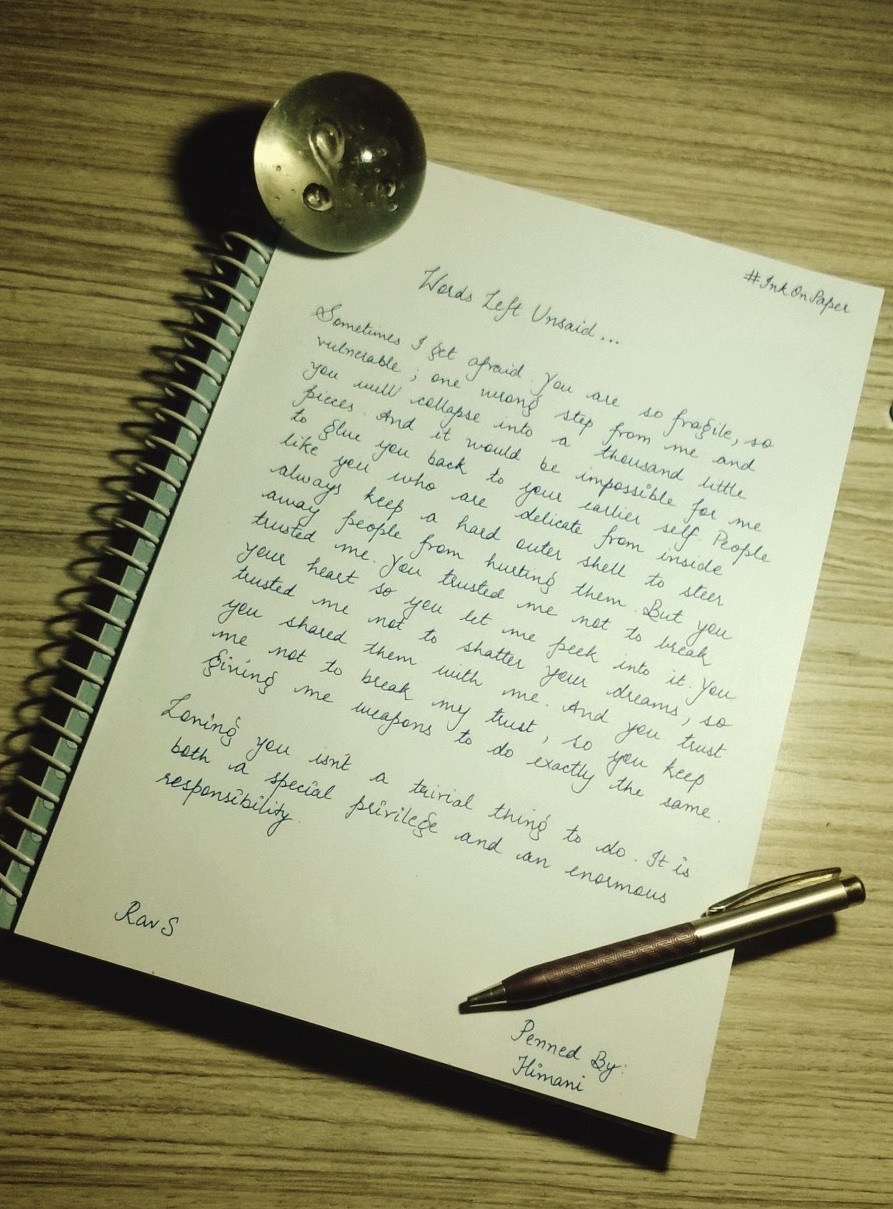 #InkOnPaper
Words Left Unsaid...
Sometimes I get afraid. You are so fragile, so
vulnerable; one wrong step from me and
you will collapse into a thousand little
pieces. And it would be impossible for me
to glue you back to your earlier self. People
like you who are delicate from inside
always keep a hard outer shell to steer
away people from hurting them. But you
trusted me. You trusted me not to break
your heart so you let me peek into it. You
trusted me not to shatter your dreams, so
you shared them with me. And you trust
me not to break my trust, so you keep
giving me weapons to do exactly the same.
Loving you isn't a trivial thing to do. It is
both a special privilege and an enormous
responsibility.
RavS
Penned By:
Himani